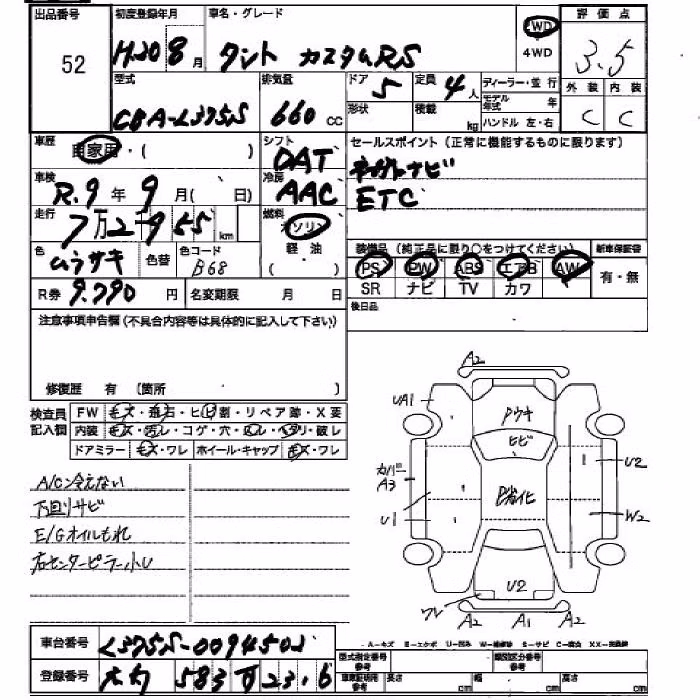 出品番号 初度登録年月 車名・グレード 評価点
52 H20 8月 タント カスタムRS 2WD 4WD 3.5
型式 排気量 ドア 定員 ディーラー・並行 外装 内装
CBA-L375S 660cc 5 4人 モデル年式 年 C C
形状 積載 kg ハンドル 左・右
車歴 自家用・( ) シフト DAT セールスポイント(正常に機能するものに限ります)
車検 R.9年9月( 日) 冷房 AAC ナビ
ETC
走行 7万2千955km 燃料 ガソリン
軽油
( )
色 ムラサキ 色替 色コード B68
装備品(純正品に限り○をつけてください) 新車保証書
PS PW ABS エアB AW 有・無
SR ナビ TV カワ
R券 9.790円 名変期限 月 日 後日品
注意事項申告欄(不具合内容等は具体的に記入して下さい)
修復歴 有 (箇所 )
検査員記入欄 FW キズ・飛石・ヒビ割・リペア跡・X要
内装 キズ・汚レ・コゲ・穴・ヌレ・ヘタリ・破レ
ドアミラー キズ・ワレ ホイール・キャップ キズ・ワレ
A/C冷えない
下回りサビ
E/Gオイルもれ
右センターピラー小U
A2
UA1
Pウキ
ヒビ
カバー
A3
U2
P劣化
U1
W2
U2
ワレ
A2 A1 A2
車台番号 L375S-0094502
A-キズ E-エクボ U-凹み W-補修跡 S-サビ C-腐食 XX-交換済
型式指定番号 参考 類別区分番号 参考
登録番号 583 23.6
車庫証明用 参考 長さ cm 幅 cm 高さ cm